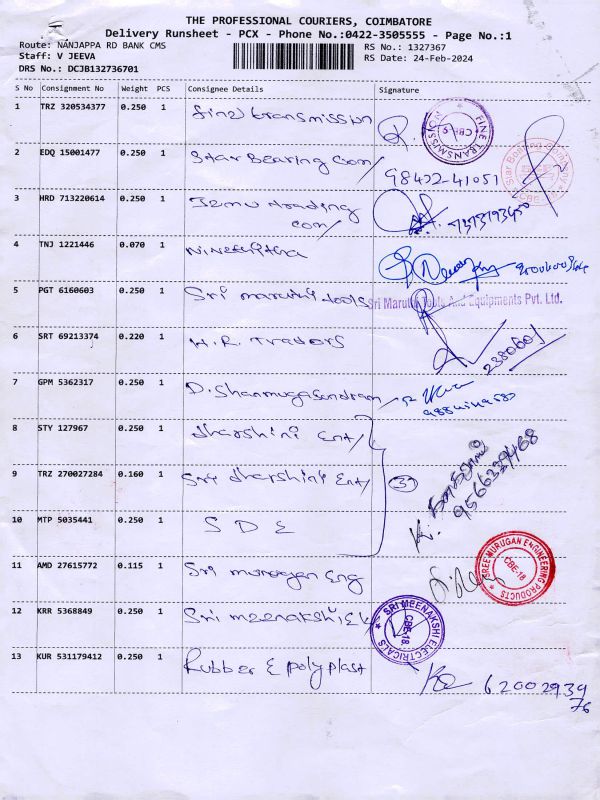 THE PROFESSIONAL COURIERS, COIMBATORE
Delivery Runsheet - PCX - Phone No.:0422-3505555 - Page No.:1
Route: NANJAPPA RD BANK CMS
Staff: V JEEVA
DRS No.: DCJB132736701
RS No.: 1327367
RS Date: 24-Feb-2024
S No Consignment No Weight PCS Consignee Details Signature
1 TRZ 320534377 0.250 1 fine transmission
FINE TRANSMISSION
CBE-9
2 EDQ 15001477 0.250 1 Star Bearing Com/ 98422-41051
Star Bearing Company
CBE
3 HRD 713220614 0.250 1 trading
com/
4 TNJ 1221446 0.070 1
5 PGT 6160603 0.250 1 Sri maruthi tools
Sri Maruthi Tools And Equipments Pvt. Ltd.
6 SRT 69213374 0.220 1 H.R. Traders 2380601
7 GPM 5362317 0.250 1 D. Shanmugasundram
8 STY 127967 0.250 1 dharshini Ent/
9 TRZ 270027284 0.160 1 Sri dharshini Ent/ 3 9566339468
10 MTP 5035441 0.250 1 S D E
11 AMD 27615772 0.115 1 Sri murugan Eng
SREE MURUGAN ENGINEERING PRODUCTS
CBE-18
12 KRR 5368849 0.250 1 Sri meenakshi Ele
SRI MEENAKSHI ELECTRICALS
CBE-18
13 KUR 531179412 0.250 1 Rubber & polyplast 62002939
76